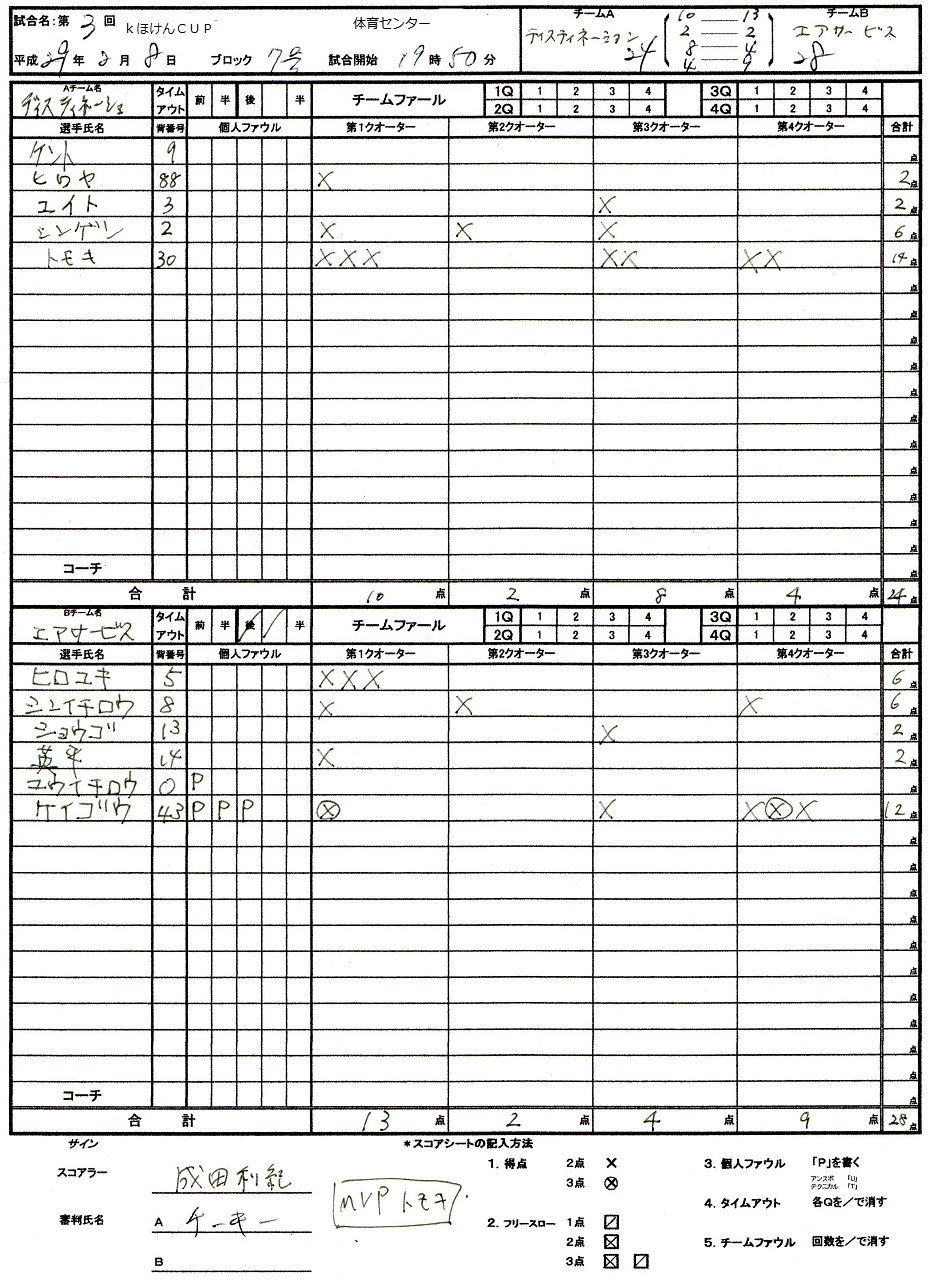 試合名:第 3 回 kほけんCUP 体育センター
平成29年2月8日 ブロック 7号 試合開始 19時50分
チームA チームB
ディスティネーション 24 エアサービス 28
10 — 13
2 — 2
8 — 4
4 — 9
Aチーム名 タイムアウト 前 半 後 半 チームファール 1Q 1 2 3 4 3Q 1 2 3 4
ディスティネーション 2Q 1 2 3 4 4Q 1 2 3 4
選手氏名 背番号 個人ファウル 第1クオーター 第2クオーター 第3クオーター 第4クオーター 合計
ケント 9 点
ヒロヤ 88 X 2点
ユイト 3 X 2点
シンゲン 2 X X X 6点
トモキ 30 XXX XX XX 14点
コーチ 点
合計 10点 2点 8点 4点 24点
Bチーム名 タイムアウト 前 半 後 半 チームファール 1Q 1 2 3 4 3Q 1 2 3 4
エアサービス 2Q 1 2 3 4 4Q 1 2 3 4
選手氏名 背番号 個人ファウル 第1クオーター 第2クオーター 第3クオーター 第4クオーター 合計
ヒロユキ 5 XXX 6点
シンイチロウ 8 X X X 6点
ショウゴ 13 X 2点
英平 14 X 2点
ユウイチロウ 0 P 点
ケイゴリウ 43 P P P ⊗ X X⊗X 12点
コーチ 点
合計 13点 2点 4点 9点 28点
サイン
*スコアシートの記入方法
スコアラー 成田利紀
審判氏名 A ケーキー
B
MVP トモキ
1. 得点 2点 ×
3点 ⊗
2. フリースロー 1点 ⧄
2点 ☒
3点 ☒ ⧄
3. 個人ファウル 「P」を書く
アンスポ 「U」
テクニカル 「T」
4. タイムアウト 各Qを/で消す
5. チームファウル 回数を/で消す